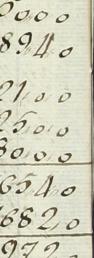 000,0
894,0
21,0,0
25,0,0
80,0,0
654,0
682,0
972,